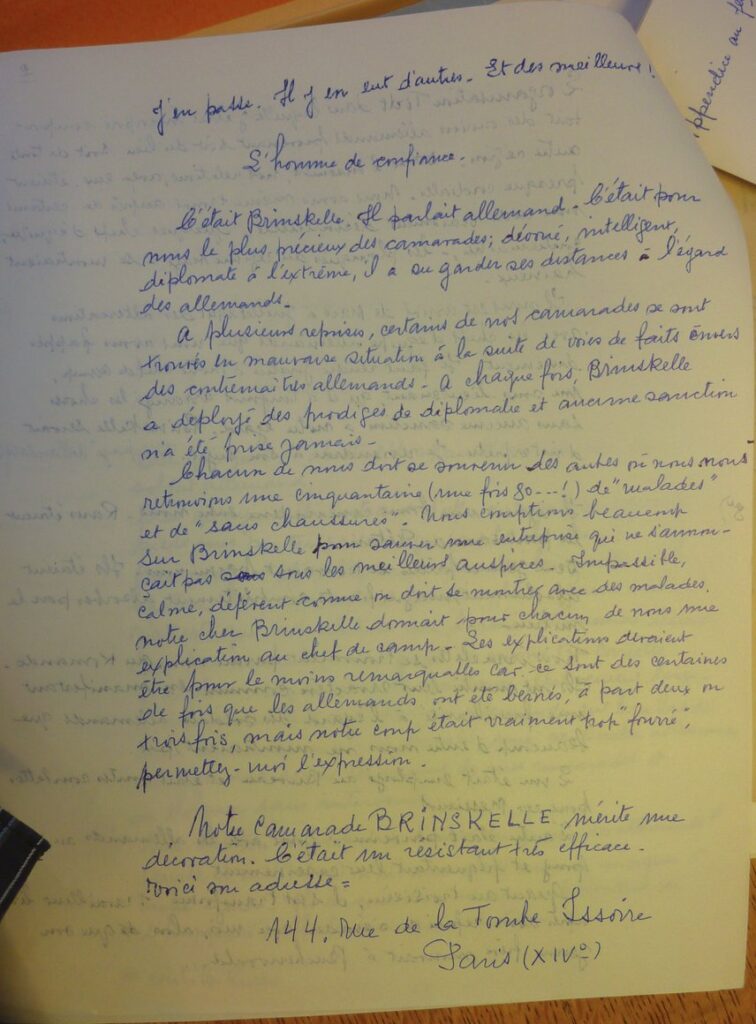 J'en passe. Il y en eut d'autres. Et des meilleurs!
L'homme de confiance.
C'était Brinskelle. Il parlait allemand. C'était pour
nous le plus précieux des camarades; dévoué, intelligent,
diplomate à l'extrême, il a su garder ses distances à l'égard
des allemands.
A plusieurs reprises, certains de nos camarades se sont
trouvés en mauvaise situation à la suite de voies de faits envers
des contremaîtres allemands. A chaque fois, Brinskelle
a déployé des prodiges de diplomatie et aucune sanction
n'a été prise jamais.
Chacun de nous doit se souvenir des autres où nous nous
retrouvions une cinquantaine (une fois 80---!) de "malades"
et de "sans chaussures". Nous comptions beaucoup
sur Brinskelle pour sauver une entreprise qui ne s'annon-
çait pas sous les meilleurs auspices. Impassible,
calme, déférent comme on doit se montrer avec des malades,
notre cher Brinskelle donnait pour chacun de nous une
explication au chef de camp. Les explications devaient
être pour le moins remarquables car ce sont des centaines
de fois que les allemands ont été bernés, à part deux ou
trois fois, mais notre coup était vraiment trop "fourré",
permettez-moi l'expression.
Notre camarade BRINSKELLE mérite une
décoration. C'était un résistant très efficace.
Voici son adresse =
144, rue de la Tombe Issoire
Paris (XIVº)
ppendice au